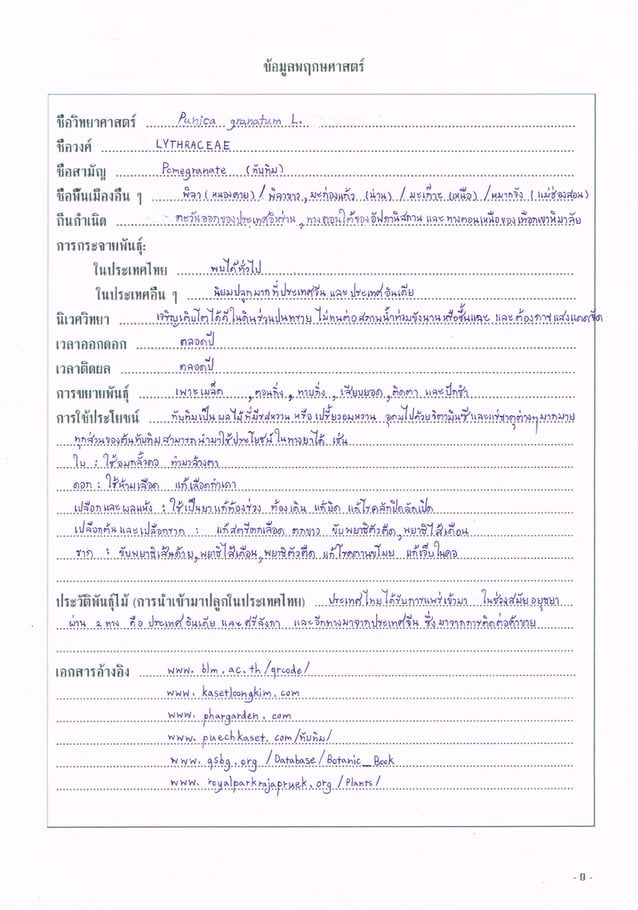 ข้อมูลพฤกษศาสตร์
ชื่อวิทยาศาสตร์ Punica granatum L.
ชื่อวงศ์ LYTHRACEAE
ชื่อสามัญ Pomegranate (ทับทิม)
ชื่อพื้นเมืองอื่น ๆ พิลา (หนองคาย) / พิลาขาว, มะก่องแก้ว (น่าน) / มะเก๊าะ (เหนือ) / หมากจัง (แม่ฮ่องสอน)
ถิ่นกำเนิด ตะวันออกของประเทศอิหร่าน, ทางตอนใต้ของอัฟกานิสถาน และทางตอนเหนือของเทือกเขาหิมาลัย
การกระจายพันธุ์:
ในประเทศไทย พบได้ทั่วไป
ในประเทศอื่น ๆ นิยมปลูกมากที่ประเทศจีน และประเทศอินเดีย
นิเวศวิทยา เจริญเติบโตได้ดีในดินร่วนปนทราย ไม่ทนต่อสภาพน้ำท่วมขังนานหรือชื้นแฉะ และต้องการแสงแดดจัด
เวลาออกดอก ตลอดปี
เวลาติดผล ตลอดปี
การขยายพันธุ์ เพาะเมล็ด, ตอนกิ่ง, ทาบกิ่ง, เสียบยอด, ติดตา และปักชำ
การใช้ประโยชน์ ทับทิมเป็นผลไม้ที่มีรสหวาน หรือเปรี้ยวอมหวาน อุดมไปด้วยวิตามินซีและแร่ธาตุต่างๆมากมาย
ทุกส่วนของต้นทับทิมสามารถนำมาใช้ประโยชน์ในทางยาได้ เช่น
ใบ : ใช้อมกลั้วคอ ทำยาล้างตา
ดอก : ใช้ห้ามเลือด แก้เลือดกำเดา
เปลือกและผลแห้ง : ใช้เป็นยาแก้ท้องร่วง ท้องเดิน แก้บิด แก้โรคลักปิดลักเปิด
เปลือกต้นและเปลือกราก : แก้สตรีตกเลือด ตกขาว ขับพยาธิตัวตืด, พยาธิไส้เดือน
ราก : ขับพยาธิเส้นด้าย, พยาธิไส้เดือน, พยาธิตัวตืด แก้โรคตานขโมย แก้เจ็บในคอ
ประวัติพันธุ์ไม้ (การนำเข้ามาปลูกในประเทศไทย) ประเทศไทยได้รับการแพร่เข้ามา ในช่วงสมัยอยุธยา
ผ่าน 2 ทาง คือ ประเทศอินเดีย และ ศรีลังกา และอีกทางมาจากประเทศจีน ซึ่งมาจากการติดต่อค้าขาย
เอกสารอ้างอิง www.blm.ac.th/qrcode/
www.kasetloongkim.com
www.phargarden.com
www.puechkaset.com/ทับทิม/
www.qsbg.org/Database/Botanic_Book
www.royalparkrajapruek.org/Plants/